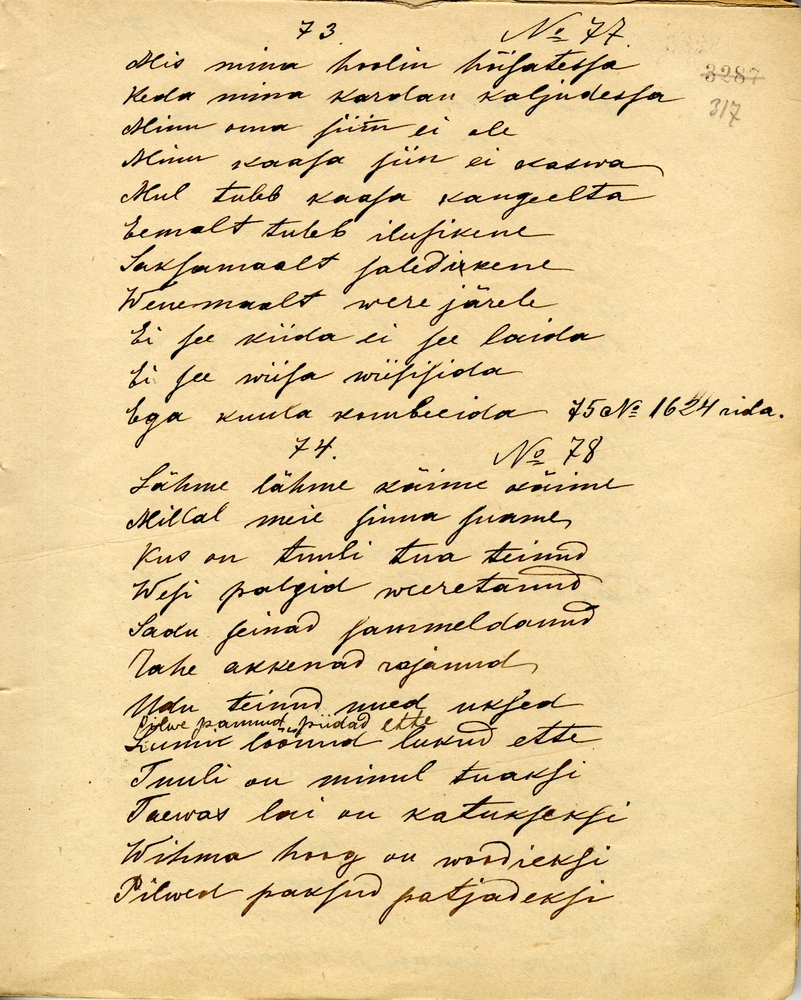 73. No 77.
3287
317
Mis mina hoolin hõisatessa
Keda mina kardan kaljudessa
Minu oma siin ei ole
Minu kaasa siin ei kaswa
Mul tuleb kaasa kangeelta
Eemalt tuleb ilusikene
Saksamaalt saledirkene
Wenemaalt were järele
Ei see kiida ei see laida
Ei see wiisa wiisisida
Ega kuula kombeeida 75 No 1624 rida.
74. No 78
Lähme lähme käime käime
Millal meie sinna saame
Kus on tuuli tua teinud
Wesi palgid weeretanud
Sadu seinad sammeldanud
Rahe akkenad rajanud
Udu teinud uued uksed
Pilwe pannud piidad ette
Lumie löönud lukud ette
Tuuli on minul tuaksi
Taewas lai on katukseksi
Wihma hoog on woodieksi
Pilwed paksud patjadeksi